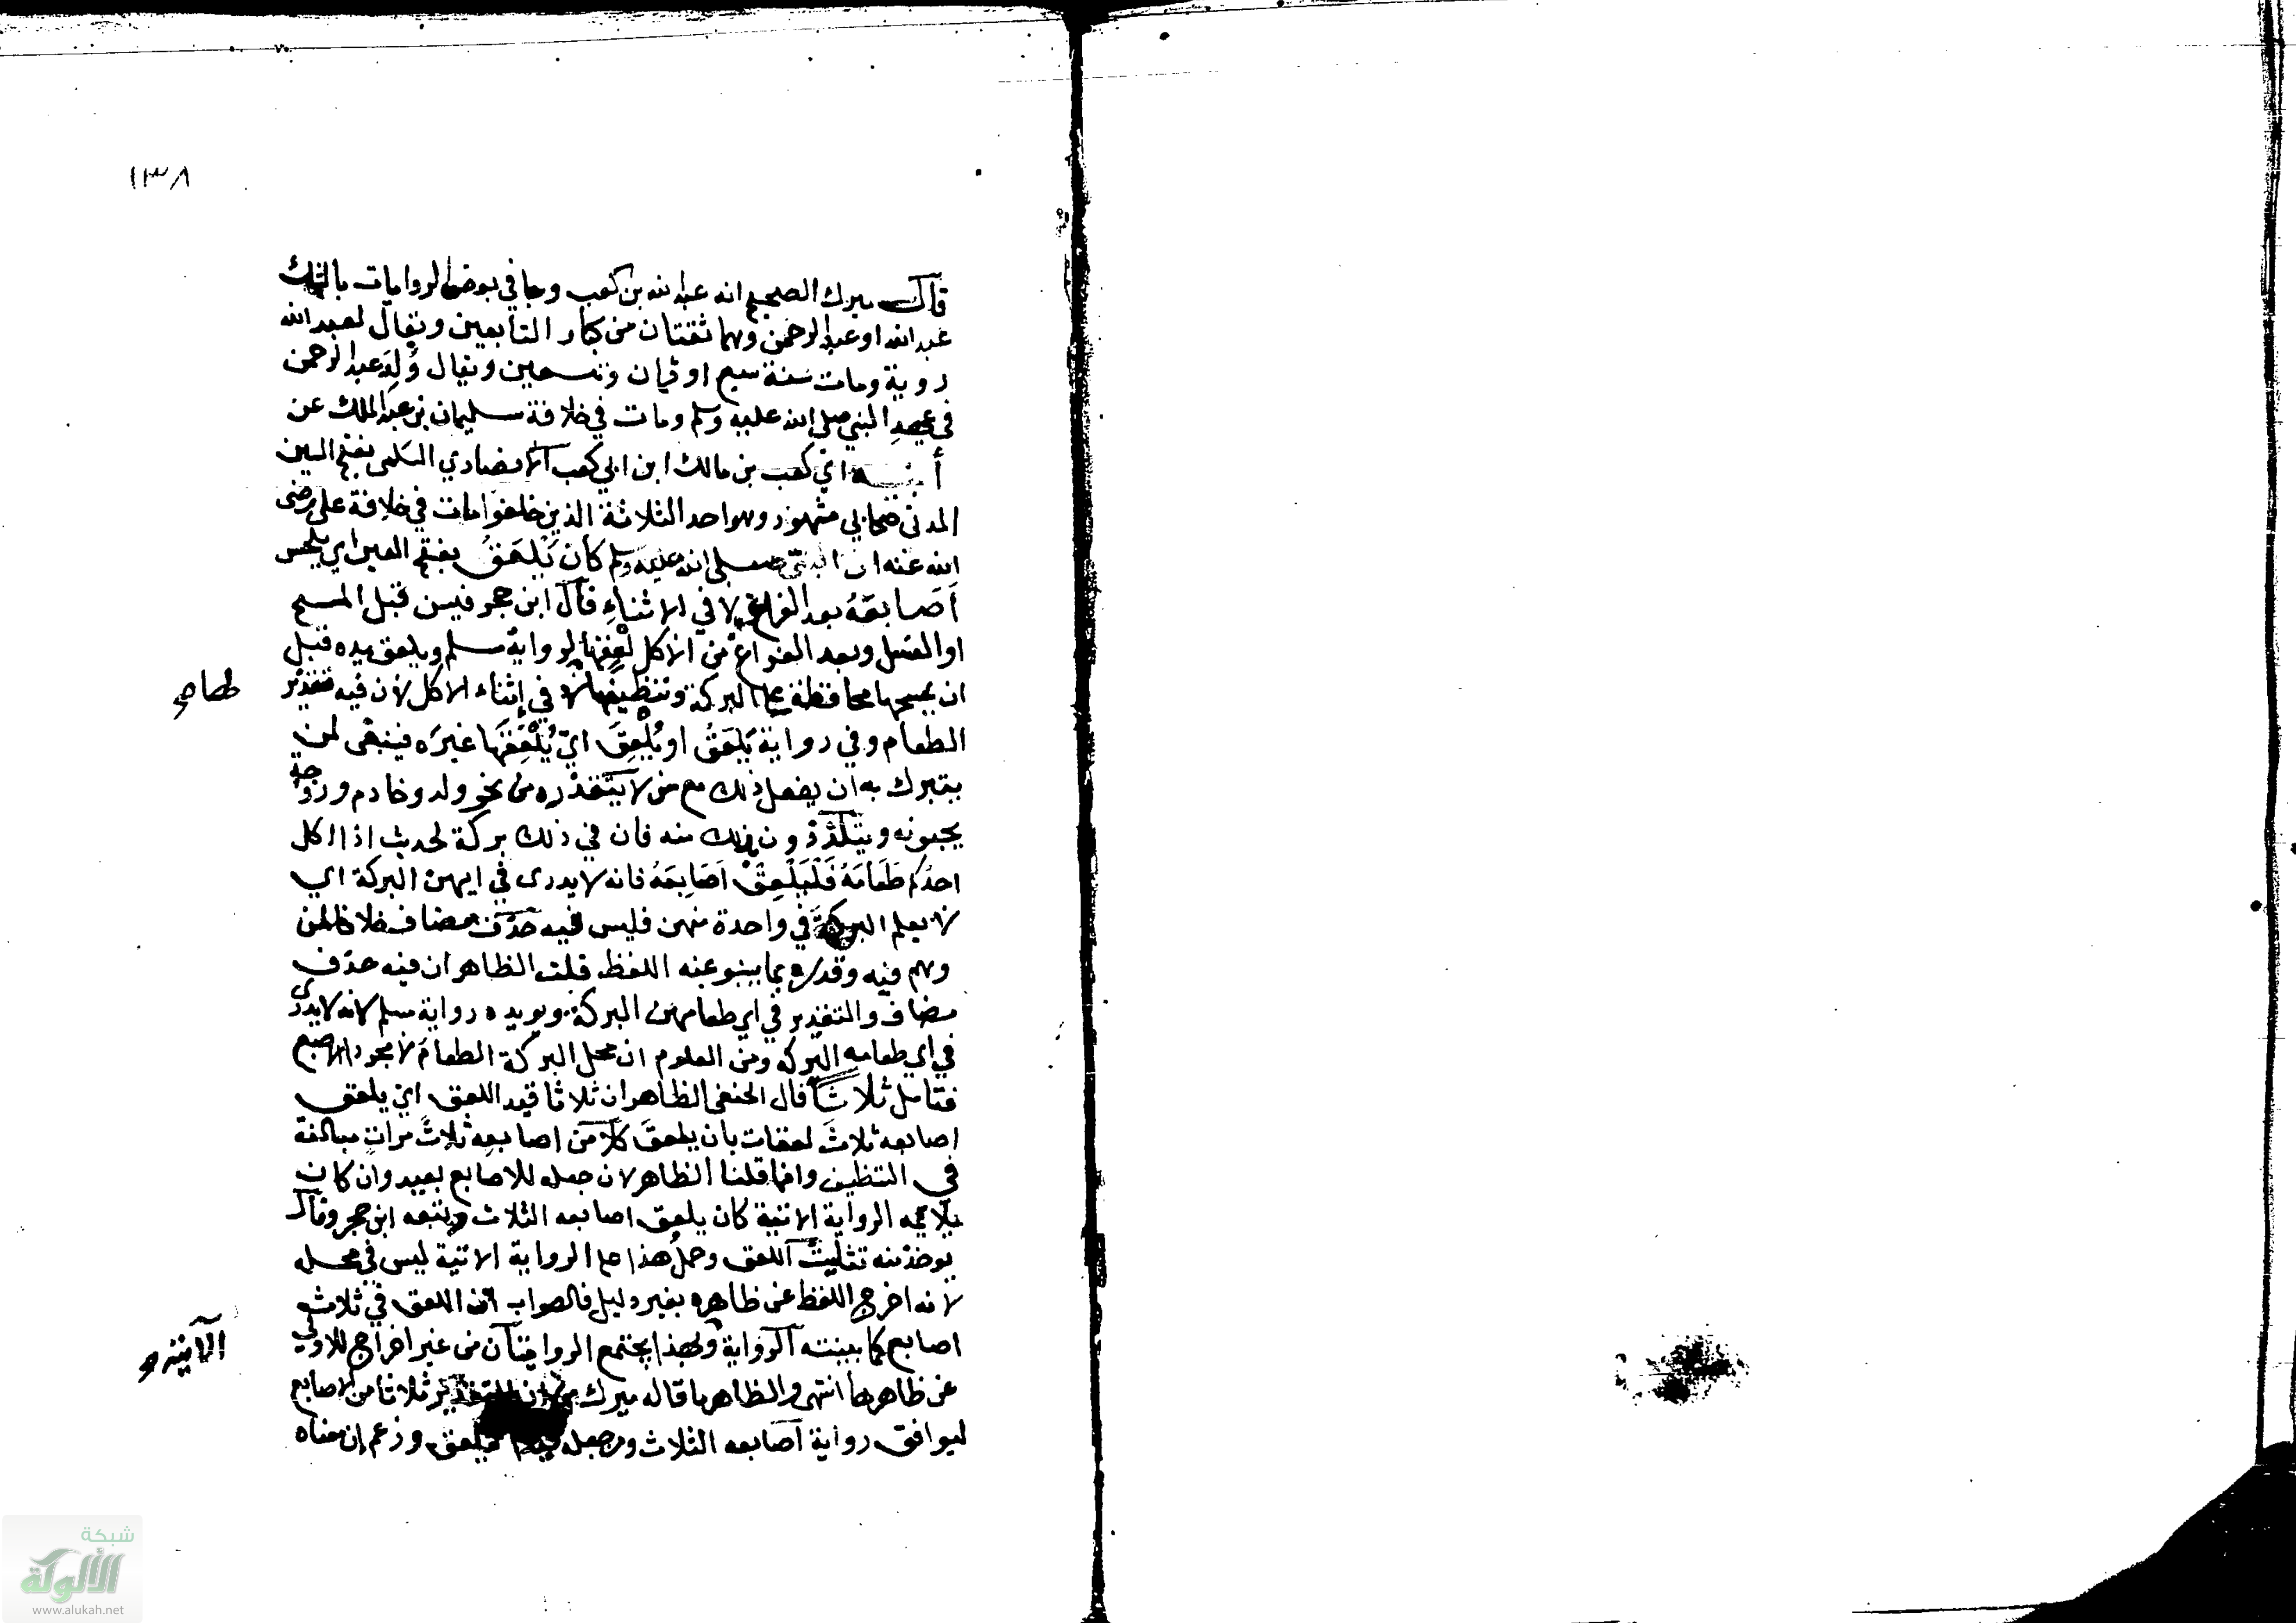 ١٣٨
قال ميرك الصحيح انه عبد الله بن كعب وجا في بعض الروايات بالشك
عبد الله او عبد الرحمن وهما ثقتان من كبار التابعين ويقال لعبد الله
روية ومات سنة سبع او ثمان وتسعين ويقال وُلِدَ عبد الرحمن
في عهدِ النبي صلى الله عليه وسلم ومات في خلافة سليمان بن عبد الملك عن
أبيه اي كعب بن مالك ابن ابي كعب الانصاري السَلمى بفتح السين
المدنى صحابي مشهور وهو احد الثلاثة الذين خلفوا مات في خلافة على رضى
الله عنه ان النبى صلى الله عليه وسلم كان يَلْعَقُ بفتح العين اي يلحس
اَصَابعَهُ بعد الفراغ لا في الاثناءِ قال ابن حجر فيسن قبل المسح
او الغسل وبعد الفراغ من الاكل لَعْقِهَا لرواية مسلم ويلعق يده قبل
ان يمسحها محافظة على البركة وتنظيفها لا في إثناء الاكل لان فيه تقذير
الطعام وفي رواية يَلعَقُ او يُلْعِقَ اىْ يُلْعِقَهَا غيرَه فينبغى لمن
يتبرك به ان يفعل ذلك مع من لا يَتَقذره من نحو ولد وخادم وزوجة
يحبونه ويتلذذون بذلك منه فان في ذلك بركة لحديث اذا اكل
احدُكم طَعَامَهُ فَلْيَلْعِقْ اَصَابِعَهُ فانه لا يدرى في ايهن البركة اي
لا يعلم البركة في واحدة منهن فليس فيه حذف مضاف خلافا لمن
وهم فيه وقدره بما ينبو عنه اللفظ قلت الظاهر ان فيه حذف
مضاف والتقدير في اي طعامهن البركة ويويده رواية مسلم لانه لا يدرى
في اي طعامه البركة ومن المعلوم ان محل البركة الطعامَ لا مجرد الاصبع
فتامل ثلاثاً قال الحنفى الظاهر ان ثلاثا قيد اللعق اى يلعق
اصابعه ثلاثَ لعقات بان يلعقَ كلاّ من اصابعِه ثلاثَ مراتٍ مبالغة
في التنظيف وانما قلنا الظاهر لان جعله للاصابع بعيد وان كان
يلائمه الرواية الاتية كان يلعق اصابعه الثلاث وتبعه ابن حجر وقال
يوخذ منه تثليثُ اللعق وحملُ هذا على الرواية الاتية ليس في محله
لانه اخرج اللفظ عن ظاهره بغير دليل فالصواب ان اللعق في ثلاث
اصابع كما بينته الرواية وبهذا يجتمع الروايتان من غير اخراج للاولى
عن ظاهرها انتهى والظاهر ما قاله ميرك من ان التقدير ثلاثا من الاصابع
ليوافق رواية اصابعه الثلاث ومن جعله قيدا ليلعق وزعم ان معناه
الآتية
شبكة
الألوكة
www.alukah.net